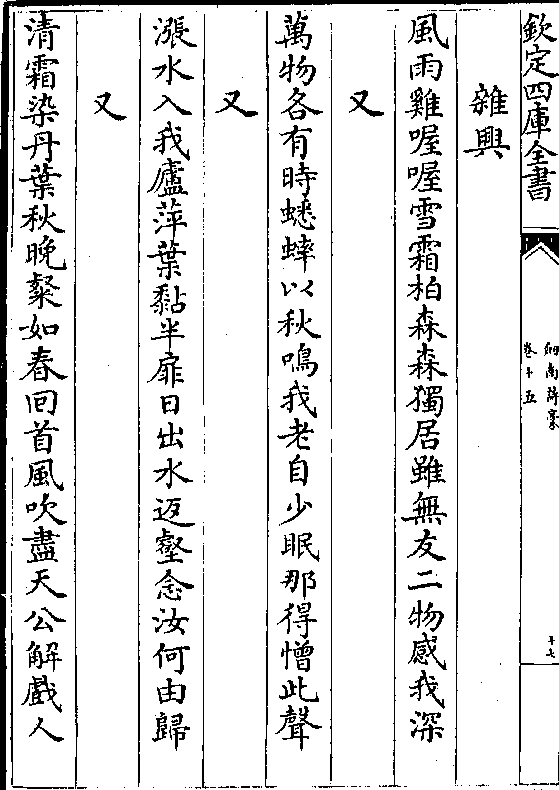 欽定四庫全書
劒南詩槀
卷十五
十七
雜興
風雨雞喔喔雪霜柏森森獨居雖無友二物感我深
又
萬物各有時蟋蟀以秋鳴我老自少眠那得憎此聲
又
漲水入我廬萍葉黏半扉日出水返壑念汝何由歸
又
清霜染丹葉秋晚粲如春回首風吹盡天公解戲人